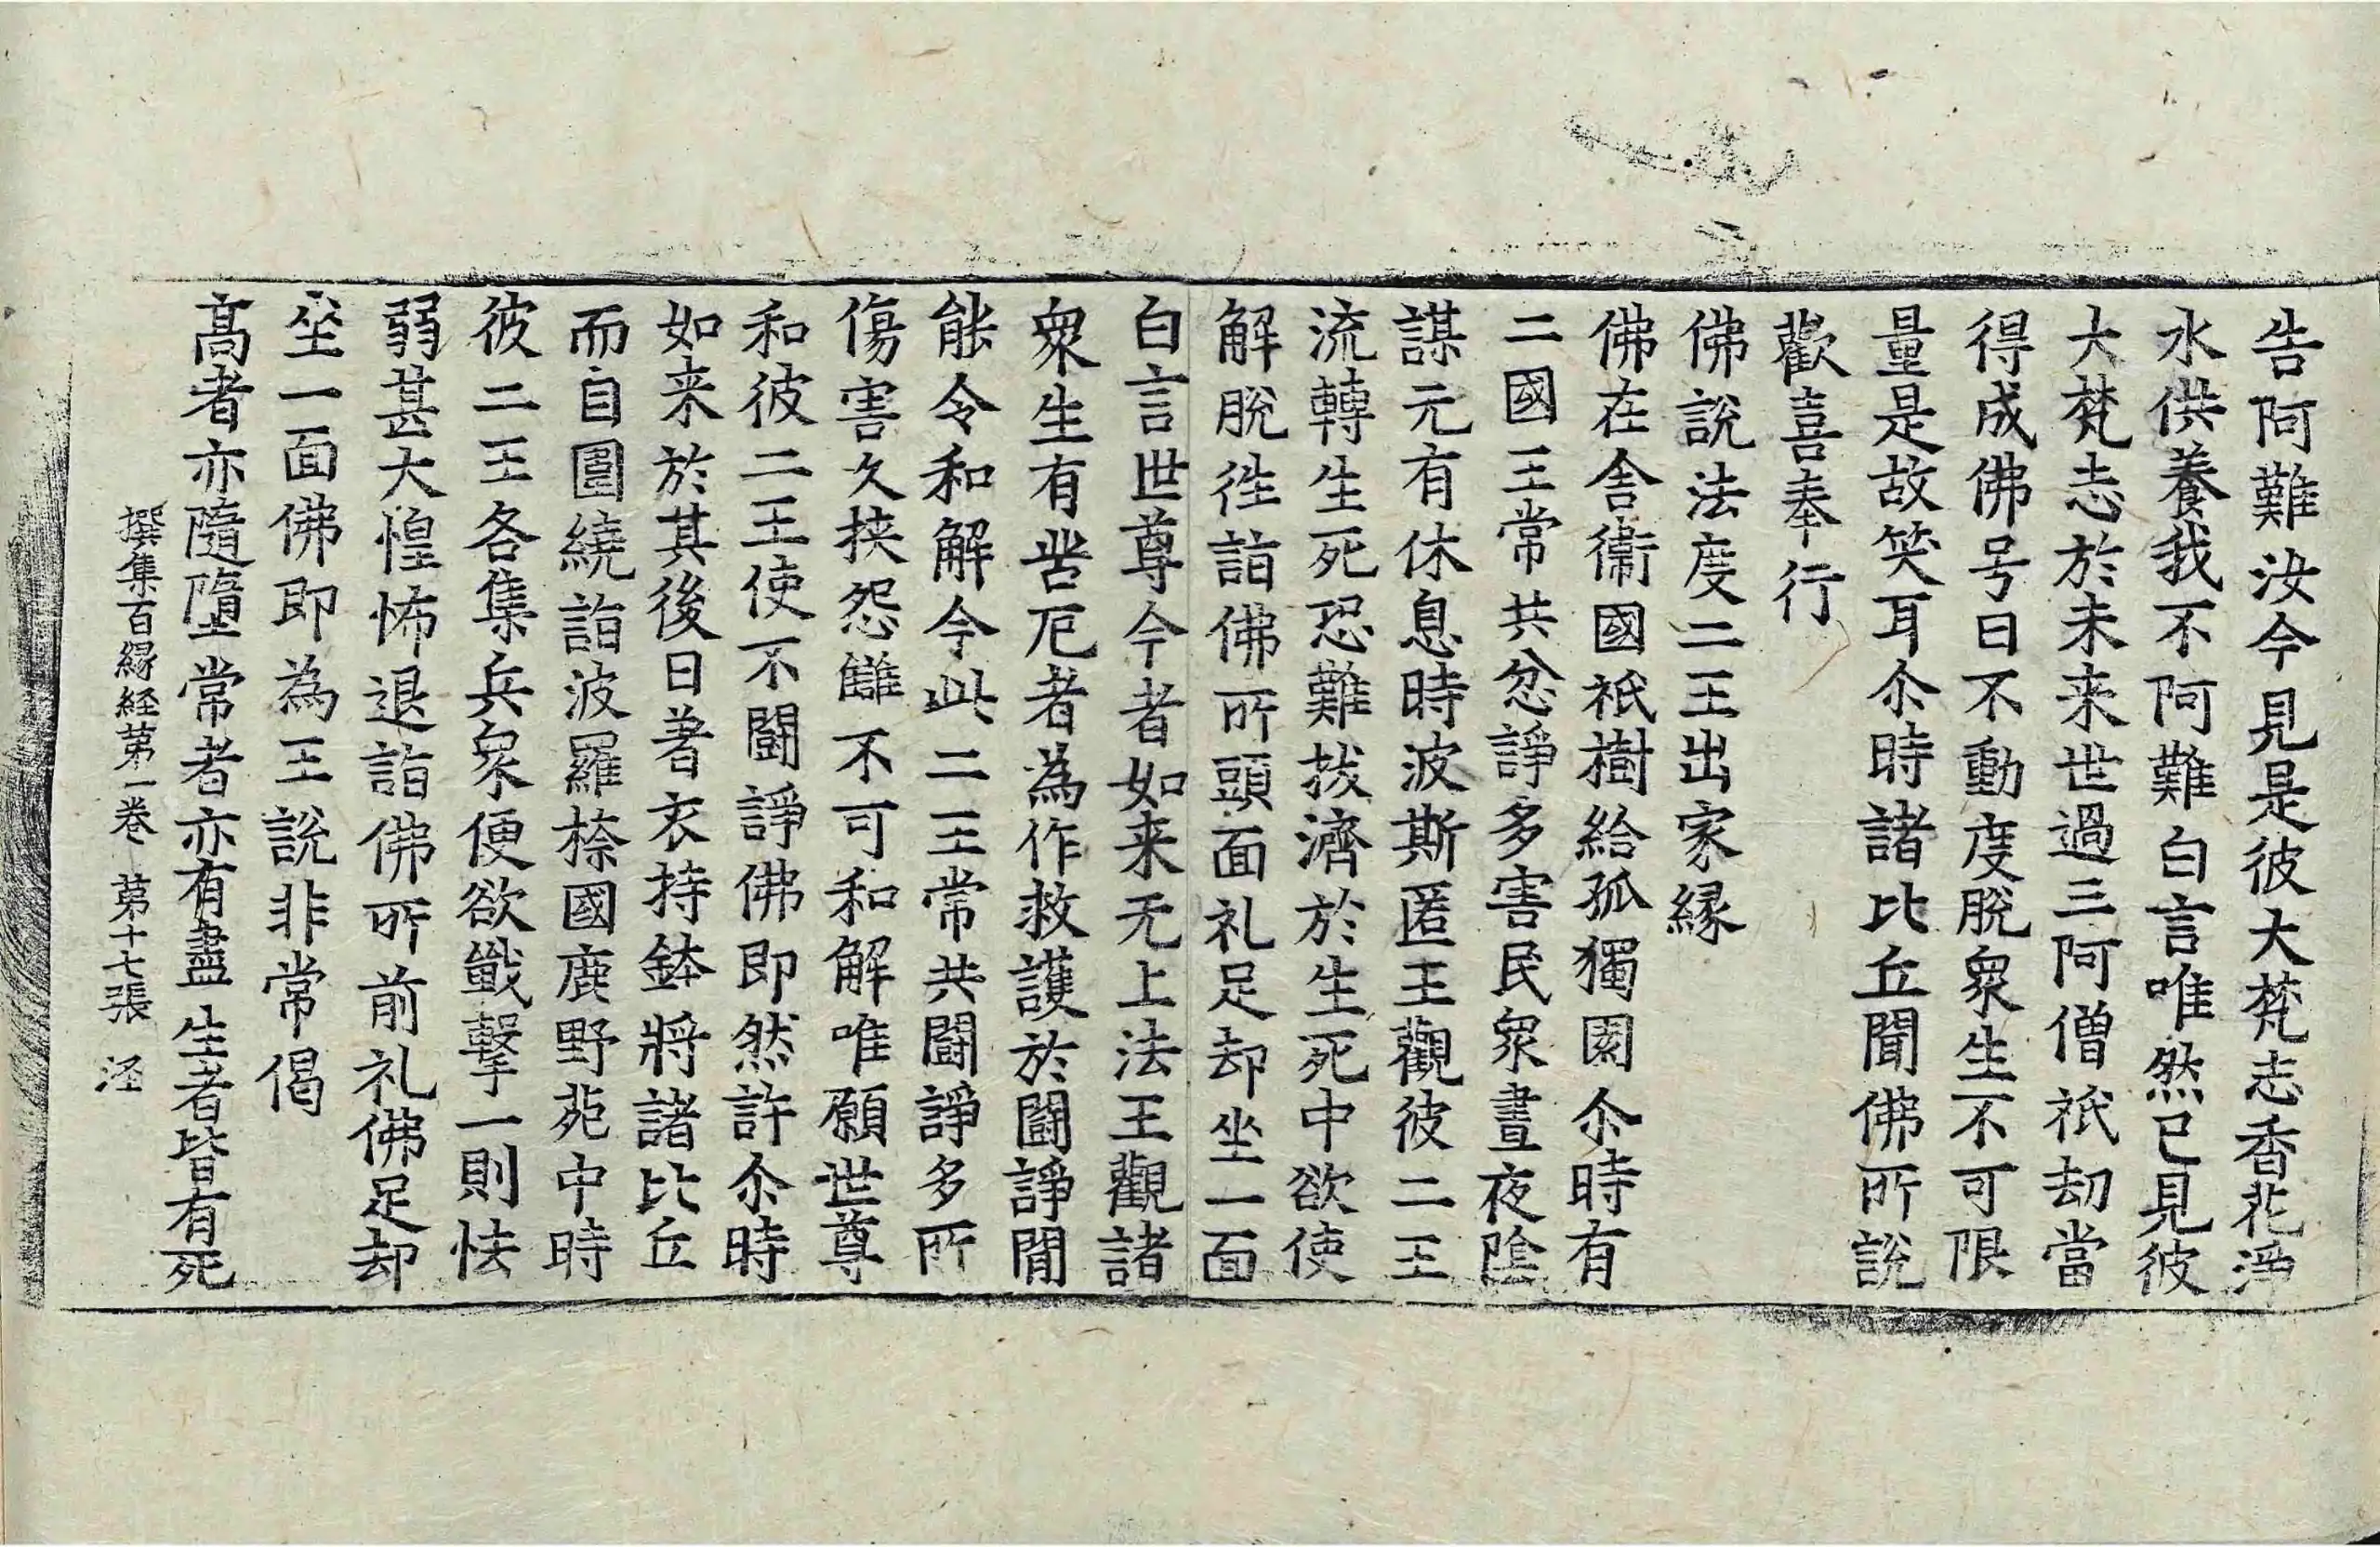 告阿難汝今見是彼大梵志香花淨
水供養我不阿難白言唯然已見彼
大梵志於未来世過三阿僧祇劫當
得成佛号曰不動度脫衆生不可限
量是故笑耳尒時諸比丘聞佛所說
歡喜奉行
佛說法度二王出家縁
佛在舍衛國祇樹給孤獨園尒時有
二國王常共忿諍多害民衆晝夜陰
謀无有休息時波斯匿王觀彼二王
流轉生死恐難拔濟於生死中欲使
解脫徃詣佛所頭面礼足却坐一面
白言世尊今者如来无上法王觀諸
衆生有苦厄者為作救護於闘諍閒
能令和解今此二王常共闘諍多所
傷害久挾怨讎不可和解唯願世尊
和彼二王使不闘諍佛即然許尒時
如来於其後日著衣持鉢將諸比丘
而自圍繞詣波羅㮈國鹿野苑中時
彼二王各集兵衆便欲戰擊一則怯
弱甚大惶怖退詣佛所前礼佛足却
坐一面佛即為王說非常偈
髙者亦隨墮常者亦有盡生者皆有死
撰集百縁経苐一巻 苐十七張 泾